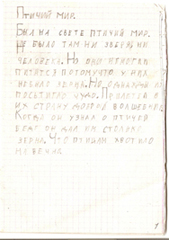 Птичий мир.
Был на свете птичий мир.
Не было там ни зверя, ни
человека. Но они не могли
питаться потому что у них
небыло зерна. Но однажды их
посетило чудо. Прилетел в
их страну добрый волшебник.
Когда он узнал о птичей
беде он дал им столько
зерна. Что птицам хватило
на век.
1